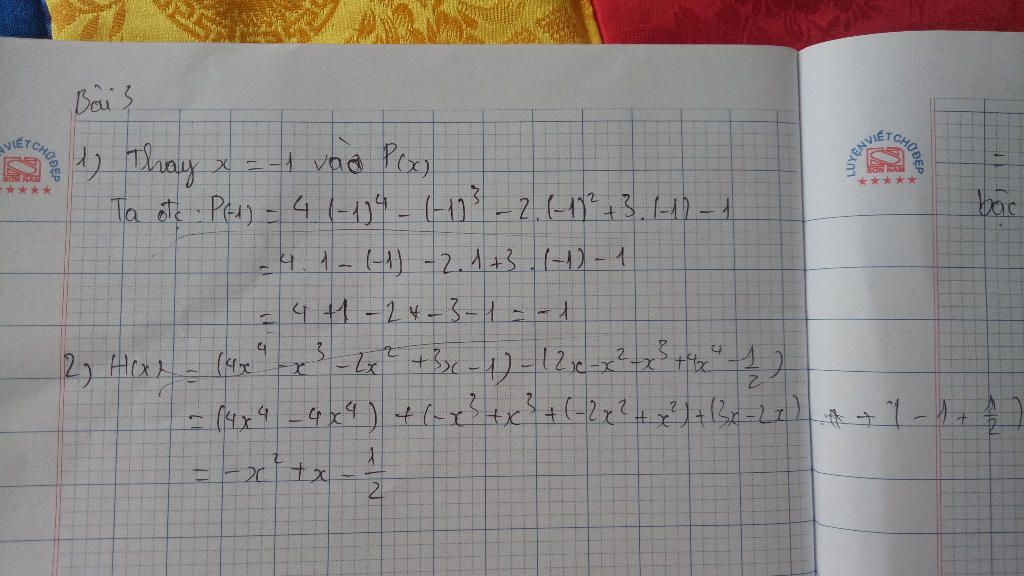 Bài 3
LUYỆN VIẾT CHỮ ĐẸP
SƠN NAM
1) Thay x = -1 vào P(x)
Ta đc : P(-1) = 4 . (-1)^4 - (-1)^3 - 2 . (-1)^2 + 3 . (-1) - 1
= 4 . 1 - (-1) - 2 . 1 + 3 . (-1) - 1
= 4 + 1 - 2 - 3 - 1 = -1
2) H(x) = (4x^4 - x^3 - 2x^2 + 3x - 1) - (2x - x^2 - x^3 + 4x^4 - 1/2)
= (4x^4 - 4x^4) + (-x^3 + x^3 + (-2x^2 + x^2) + (3x - 2x) + (-1 + 1/2)
= -x^2 + x - 1/2
LUYỆN VIẾT CHỮ ĐẸP
SƠN NAM
=
bậc